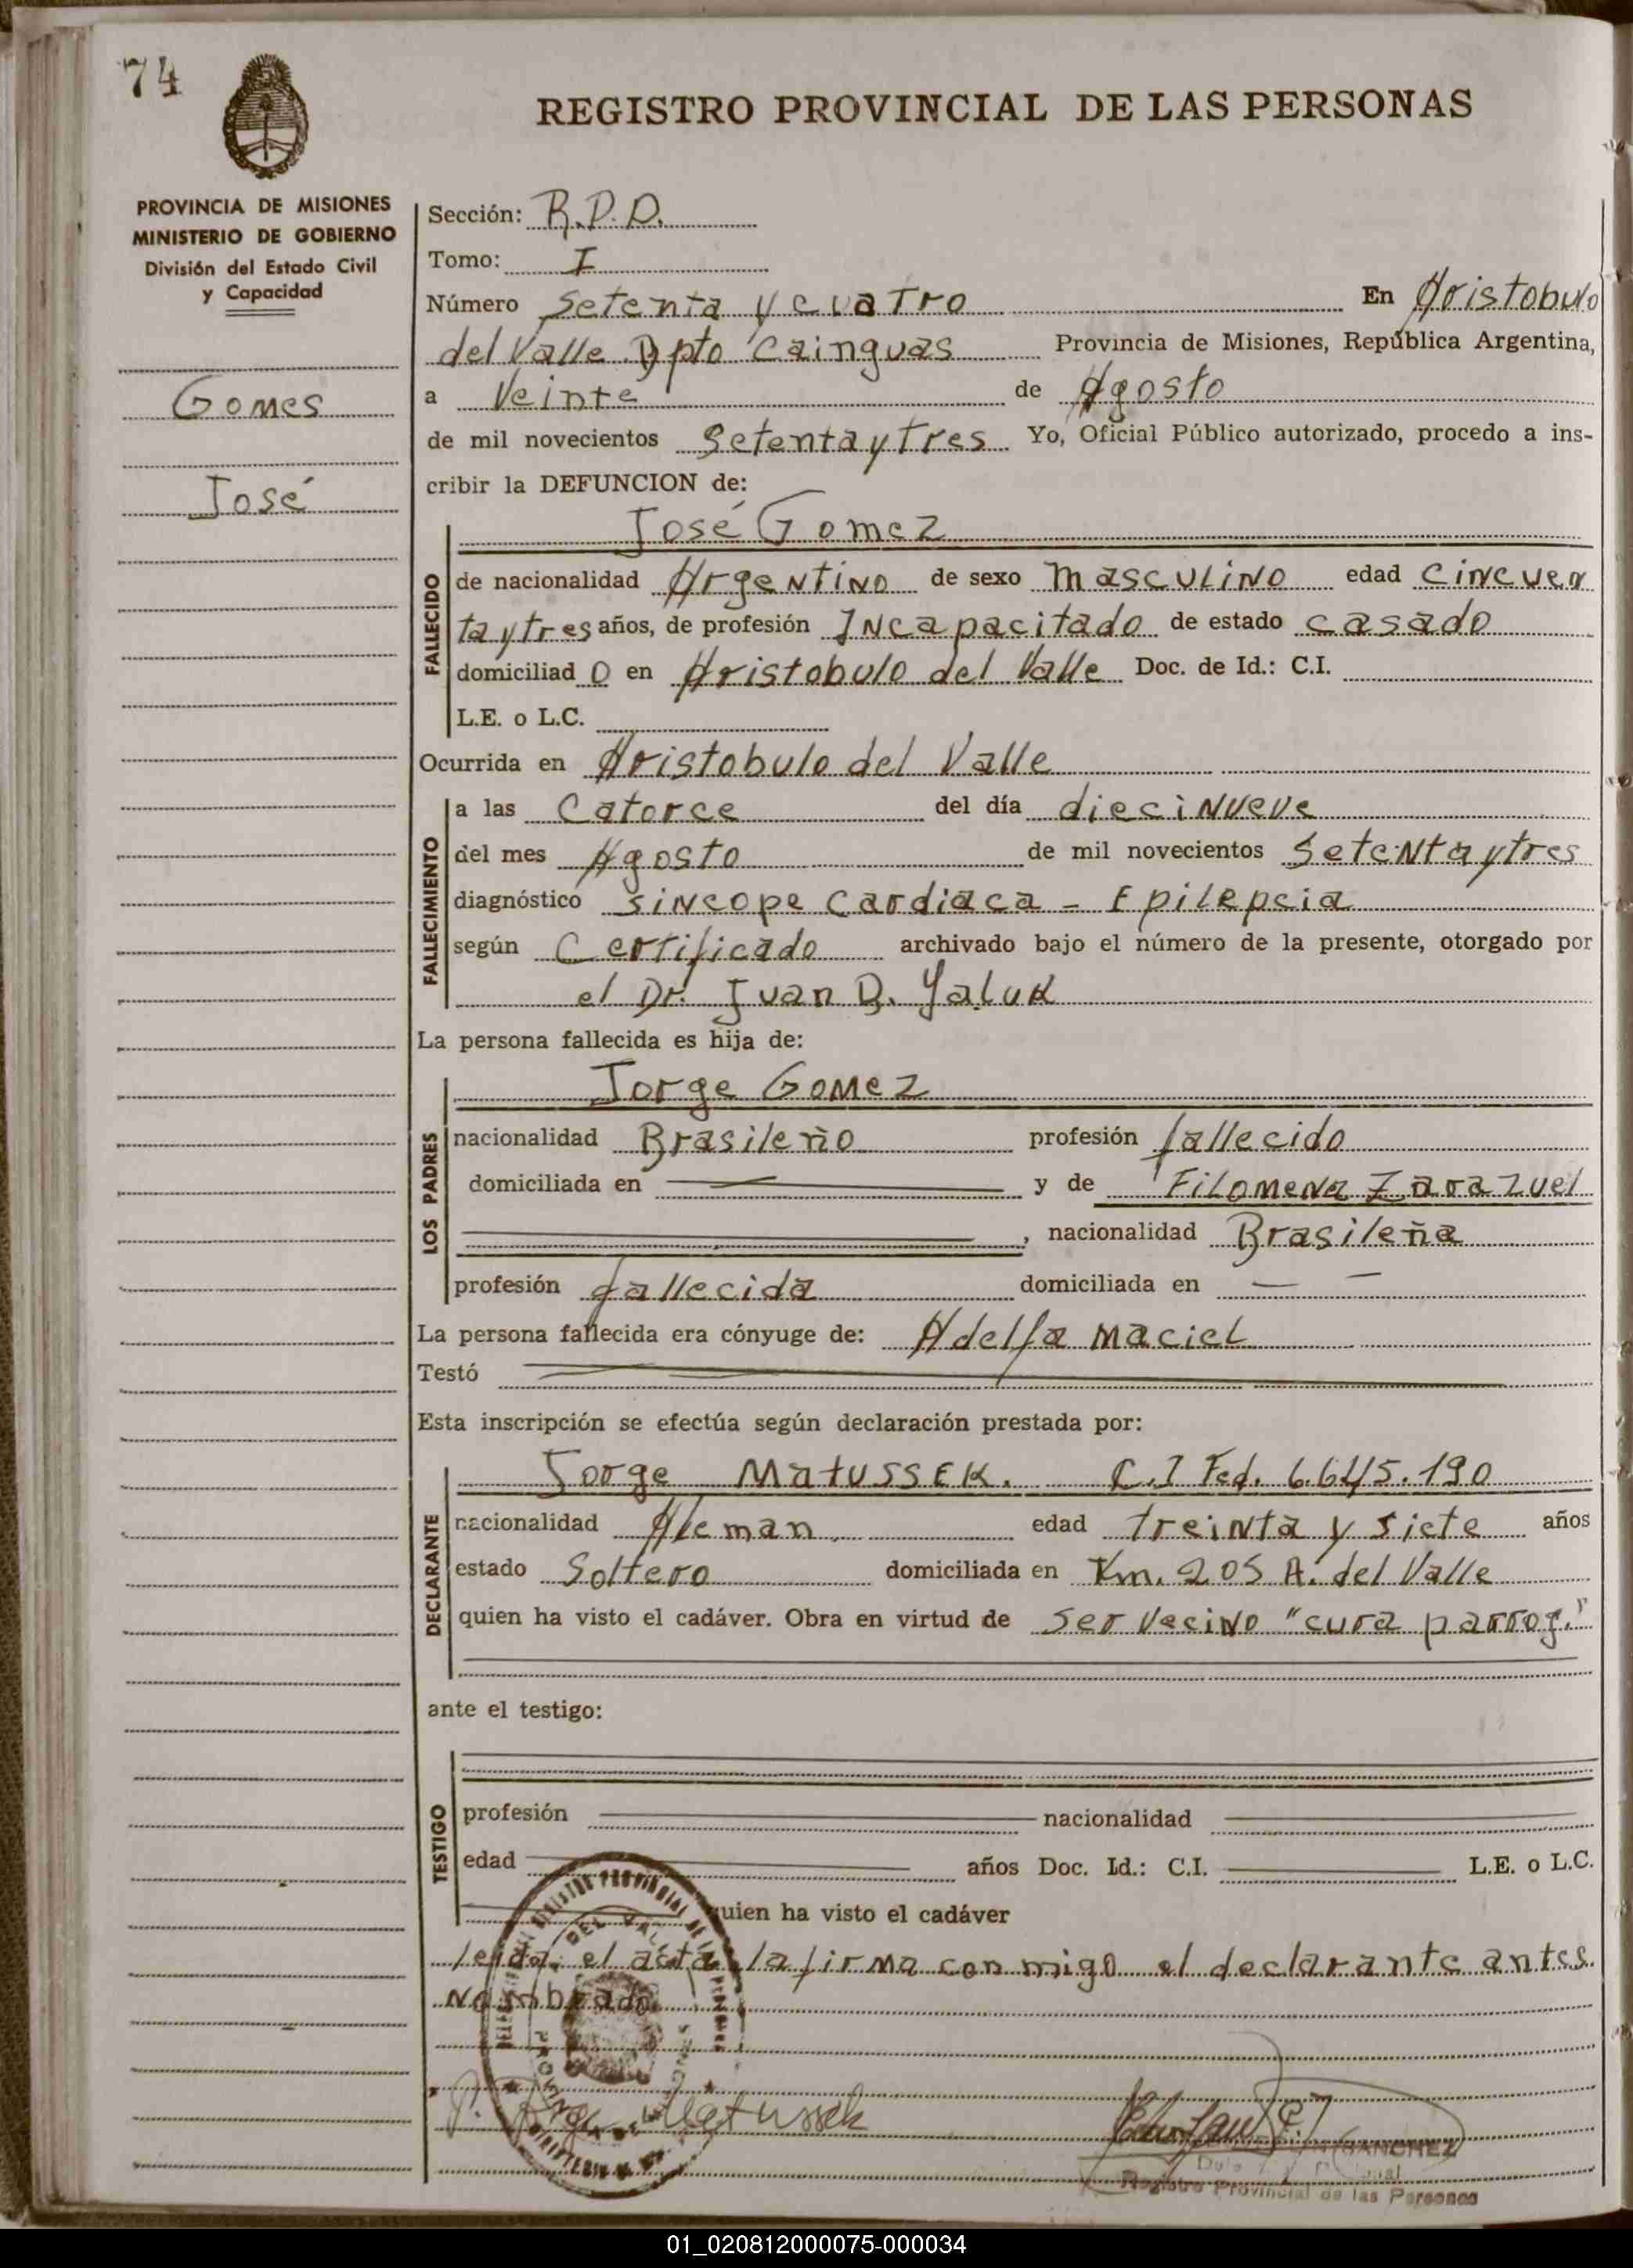 74
REGISTRO PROVINCIAL DE LAS PERSONAS
PROVINCIA DE MISIONES
MINISTERIO DE GOBIERNO
División del Estado Civil
y Capacidad
Gomes
José
Sección: R.P.D.
Tomo: I
Número Setenta y cuatro En Aristobulo
del Valle Dpto Cainguas Provincia de Misiones, República Argentina,
a Veinte de Agosto
de mil novecientos Setenta y tres Yo, Oficial Público autorizado, procedo a ins-
cribir la DEFUNCION de:
José Gomez
FALLECIDO
de nacionalidad Argentino de sexo masculino edad cincuen
ta y tres años, de profesión Incapacitado de estado casado
domiciliad o en Aristobulo del Valle Doc. de Id.: C.I.
L.E. o L.C.
Ocurrida en Aristobulo del Valle
FALLECIMIENTO
a las Catorce del día diecinueve
del mes Agosto de mil novecientos Setenta y tres
diagnóstico sincope cardiaca - Epilepcia
según Certificado archivado bajo el número de la presente, otorgado por
el Dr. Juan D. Yaluk
La persona fallecida es hija de:
Jorge Gomez
LOS PADRES
nacionalidad Brasileño profesión fallecido
domiciliada en y de Filomena Zarazuel
, nacionalidad Brasileña
profesión fallecida domiciliada en — —
La persona fallecida era cónyuge de: Adelfa maciel
Testó
Esta inscripción se efectúa según declaración prestada por:
Jorge Matussek. C.I Fed. 6.645.190
DECLARANTE
nacionalidad Aleman edad treinta y siete años
estado Soltero domiciliada en Km. 205 A. del Valle
quien ha visto el cadáver. Obra en virtud de ser vecino "cura parroq."
ante el testigo:
TESTIGO
profesión nacionalidad
edad años Doc. Id.: C.I. L.E. o L.C.
quien ha visto el cadáver
leida el acta la firma con migo el declarante antes
nombrado
Matussek
SANCHEZ
Registro Provincial de las Personas
01_020812000075-000034